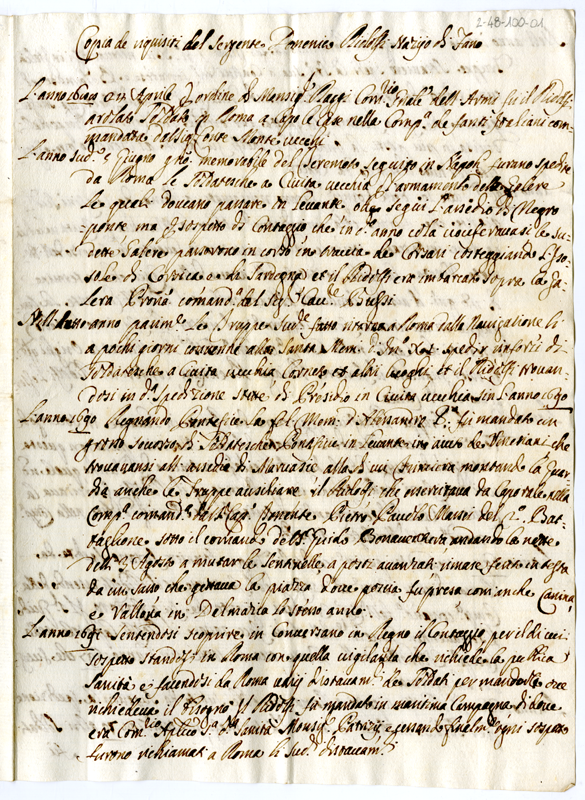 2-48-100-01
Copia de riquisiti del Sergente Domenico Ridolfi Nativo di Fano
L'anno 1688 a 27 Aprile d'ordine di Monsig.r Raggi Com.rio Gnale dell'Armi fù il Ridolfi
arolato Soldato in Roma a Capo le Case nella Comp.a de fanti Italiani com-
mandata dal Sig. Conte Monte vecchi.
L'anno sud.o 5 Giugno giorno memorabile del Teremoto seguito in Napoli furano spedite
da Roma le Soldatesche a Civita vecchia per l'armamento delle Galere
le quali doveano passare in Levante ove seguì l'assedio di Negro
ponte ma per sospetto di Contaggio che in d.o anno colà le su-
dette Galere passorono in corso in traccia de Corsari costeggiando l'Iso-
sole di Corsica e da Sardegna et il Ridolfi era imbarcato sopra la Ga-
lera comand.a del Sig.r Cav.r Bussi
Nell' anno parim.te le Truppe Sud.e fatto ritorno a Roma dalla Navigatione li
a pochi giorni convenne alla Santa Mem. d'Inn.o XI spedir rinforzi di
Soldatesche a Civita vecchia Corneto et altri luoghi et il Ridolfi trovan-
dosi in d.a spedizione stette di Presidio in Civita vecchia sin l'anno 1690
L'anno 1690 Regnando Pontefice la fel. Mem. d'Alesandro 8.vo fù mandato un
grosso soccorso di Soldatesche Pontificie in Levante in aiuto de Venetiani che
trovavansi all'assedio di Malvasie alla di cui trinciera montando la guar-
dia anche le Truppe ausiliarie il Ridolfi che esercitava da Caporale nella
Comp.a comand.a dal Cap. Tenente Pietro Pavolo Mauri del 2.o Bat-
taglione sotto il comando del Guido Bonaventura andando la notte
delli 3 Agosto a mutar le sentinelle a posti avanzati rimase ferito in testa
da un sasso che gettava la piazza dove poscia fù presa com'anche Canina
e Vallona in Delmazia lo stesso anno.
L'anno 1691 Sentendosi scoprire in Conversano in Regno il Contaggio per il di cui
sospetto standosi in Roma con quella vigilanza che richiede la publica
Sanità e facendosi da Roma varij distaccam.ti de Soldati per mandarli ove
richiedeva il bisogno il Ridolfi fù mandato in maritima e Campagna di dove
era Com.rio Aplico p.a d.a Sanità Monsig.r Patrizij e cessando finalm.te ogni sospetto
furono richiamati a Roma li sud.i distaccam.ti